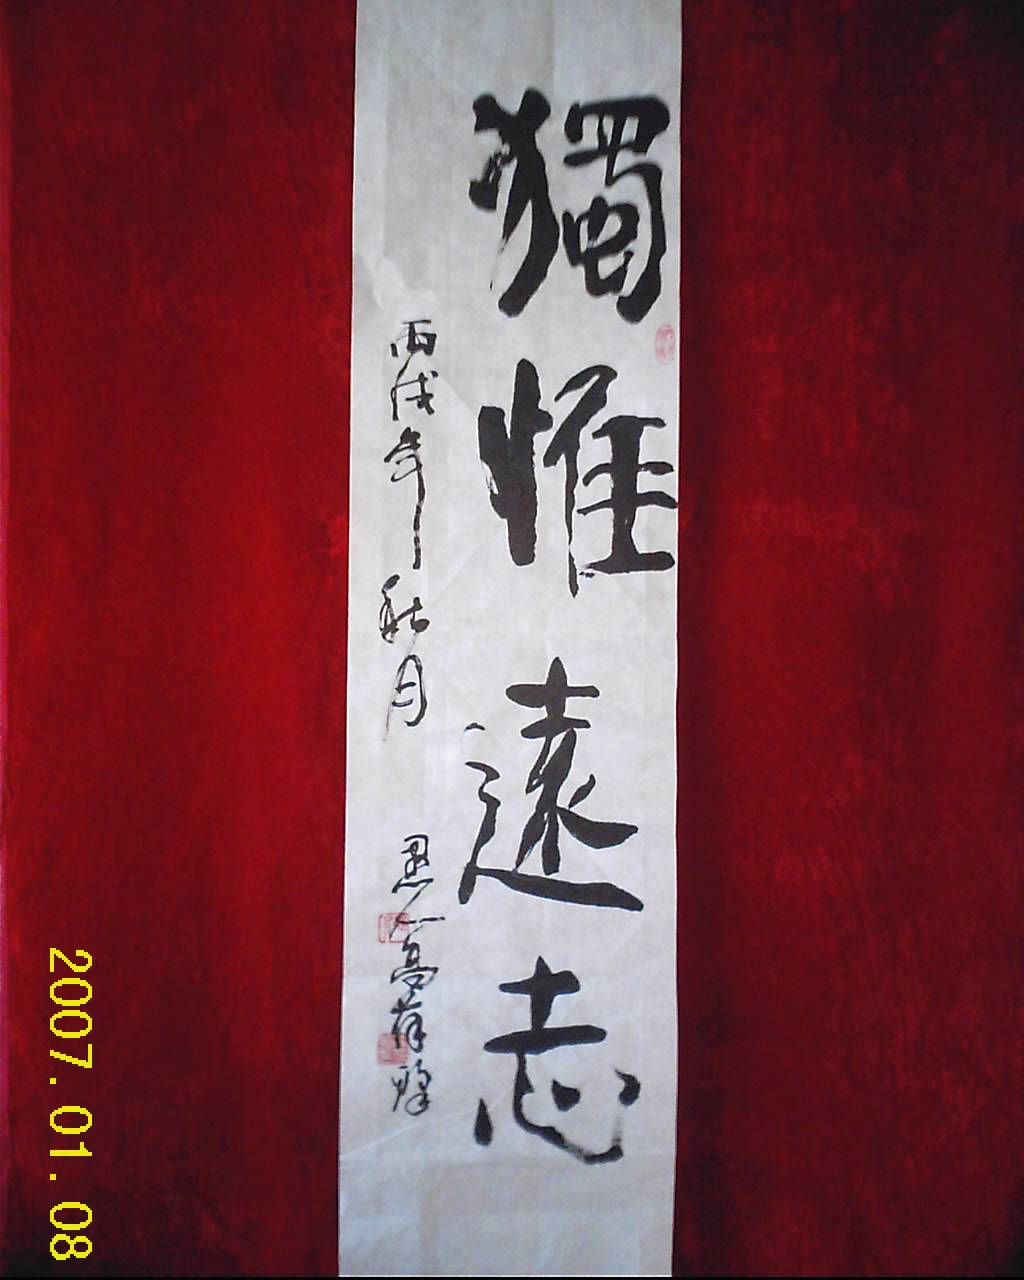 獨惟遠志
丙戌年秋月
愚人高
2007.01.08